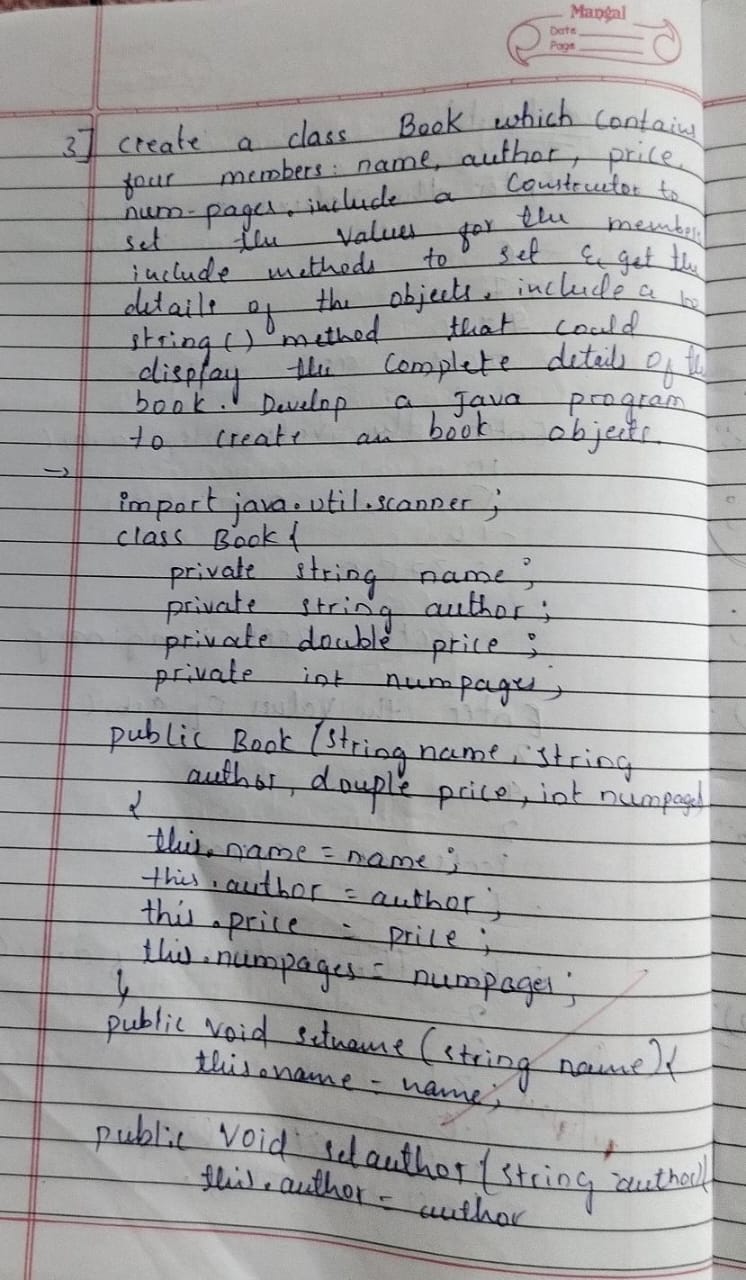 Mangal
Date
Page
3] create a class Book which contains
four members: name, author, price,
num-pages. include a constructor to
set the values for the members
include methods to set & get the
details of the objects. include a to
string() method that could
display the complete details of the
book. Develop a Java program
to create an book objects.
→
import java.util.scanner;
class Book {
private string name;
private string author;
private double price;
private int numpages;
public Book (string name, string
author, douple price, int numpages
{
this.name = name;
this.author = author;
this.price = price;
this.numpages = numpages;
}
public void setname (string name) {
this.name = name;
public void setauthor (string author) {
this.author = author